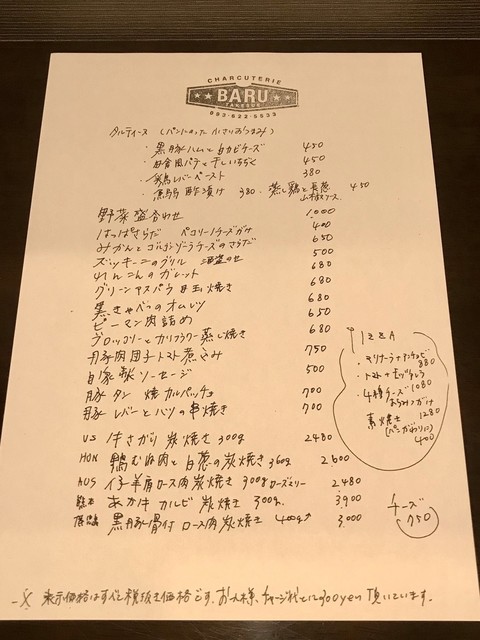 CHARCUTERIE
★★ BARU ★★
093-622-5533
タルティーヌ (パンにのった 小さなおつまみ)
・黒豚ハムと白カビチーズ 450
・田舎風パテと干しいちじく 450
・鶏レバーペースト 380
380. 蒸し鶏と長葱 450
野菜盛合わせ 1,000
はっぱさらだ ペコリーノチーズがけ 400
みかんとゴルゴンゾーラチーズのさらだ 650
ズッキーニのグリル 500
れんこんのガレット 680
グリーンアスパラ 目玉焼き 680
黒きゃべつのオムレツ 680
ピーマン肉詰め 650
ブロッコリーとカリフラワー蒸し焼き 680
豚肉団子トマト煮こみ 750
自家製ソーセージ 500
豚タン 焼カルパッチョ 700
豚レバーとハツの串焼き 700
US 牛さがり 炭焼き 300g 2480
HUN 鴨むね肉と白葱の炭焼き 360g 2600
AUS 仔羊肩ロース肉炭焼き 300g ローズマリー 2480
熊本 あか牛 カルビ 炭焼き 300g. 3,900
黒豚骨付 ロース肉炭焼き 400g↑ 3,000
PIZZA
・マリナーラ+アンチョビ 880
・トマト+モッツァレラ 1080
・4種チーズ はちみつがけ 1280
素焼き (パンがわりに) 400
チーズ 750
※ 表示価格はすべて税抜き価格です。お一人様、チャージ代として300yen 頂いています。